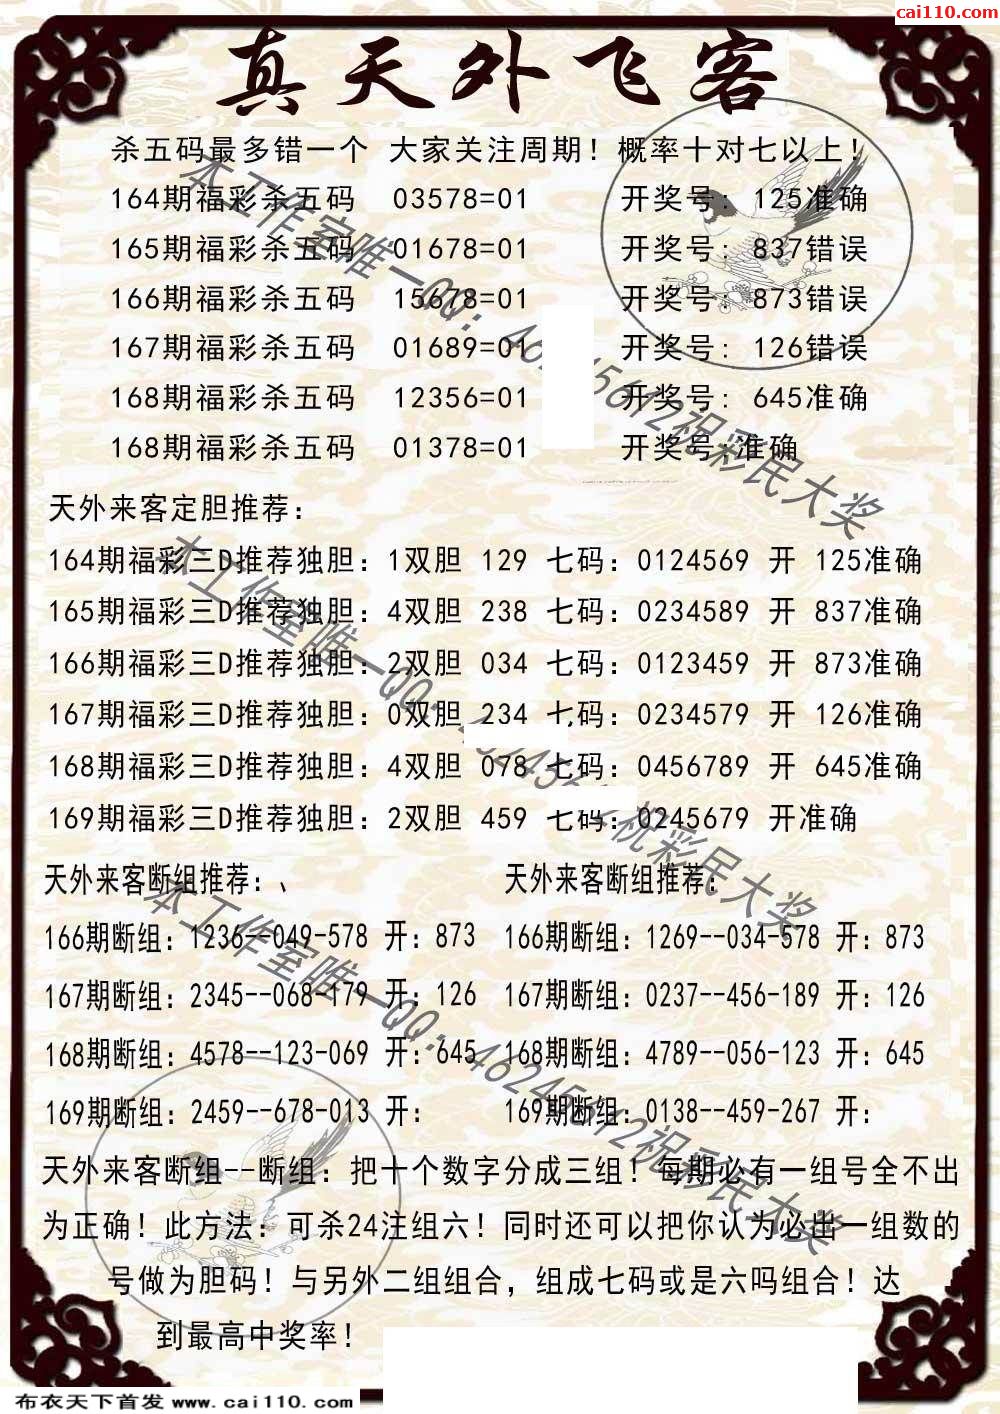 cai110.com
真天外飞客
杀五码最多错一个 大家关注周期！概率十对七以上！
164期福彩杀五码 03578=01 开奖号：125准确
165期福彩杀五码 01678=01 开奖号：837错误
166期福彩杀五码 15678=01 开奖号：873错误
167期福彩杀五码 01689=01 开奖号：126错误
168期福彩杀五码 12356=01 开奖号：645准确
168期福彩杀五码 01378=01 开奖号:准确
天外来客定胆推荐：
164期福彩三D推荐独胆：1双胆 129 七码：0124569 开 125准确
165期福彩三D推荐独胆：4双胆 238 七码：0234589 开 837准确
166期福彩三D推荐独胆：2双胆 034 七码：0123459 开 873准确
167期福彩三D推荐独胆：0双胆 234 七码：0234579 开 126准确
168期福彩三D推荐独胆：4双胆 078 七码：0456789 开 645准确
169期福彩三D推荐独胆：2双胆 459 七码：0245679 开准确
天外来客断组推荐：、 天外来客断组推荐：
166期断组：1236--049-578 开：873 166期断组：1269--034-578 开：873
167期断组：2345--068-179 开：126 167期断组：0237--456-189 开：126
168期断组：4578--123-069 开：645 168期断组：4789--056-123 开：645
169期断组：2459--678-013 开： 169期断组：0138--459-267 开：
天外来客断组--断组：把十个数字分成三组！每期必有一组号全不出
为正确！此方法：可杀24注组六！同时还可以把你认为必出一组数的
号做为胆码！与另外二组组合，组成七码或是六吗组合！达
到最高中奖率！
本工作室唯一QQ：46245612祝彩民大奖
布衣天下首发 www.cai110.com